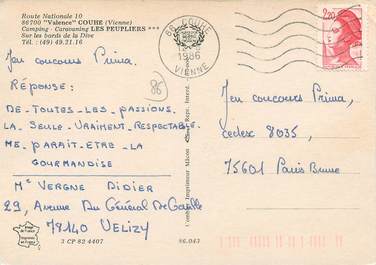 Route Nationale 10
86700 "Valence" COUHE (Vienne)
Camping - Caravaning LES PEUPLIERS ***
Sur les bords de la Dive
Tél. : (49) 49.21.16
Jeu concours Prima
RÉPONSE :
DE-TOUTES-LES-PASSIONS
LA-SEULE-VRAIMENT-RESPECTABLE
ME-PARAIT-ETRE-LA
GOURMANDISE
Mr VERGNE DIDIER
29, Avenue Du Général De Gaulle
78140 VELIZY
3 CP 82 4407
96.043
86
86 COUHE
1986
VIENNE
2,20
Jeu concours Prima,
cedex 8035,
75601 Paris Brune